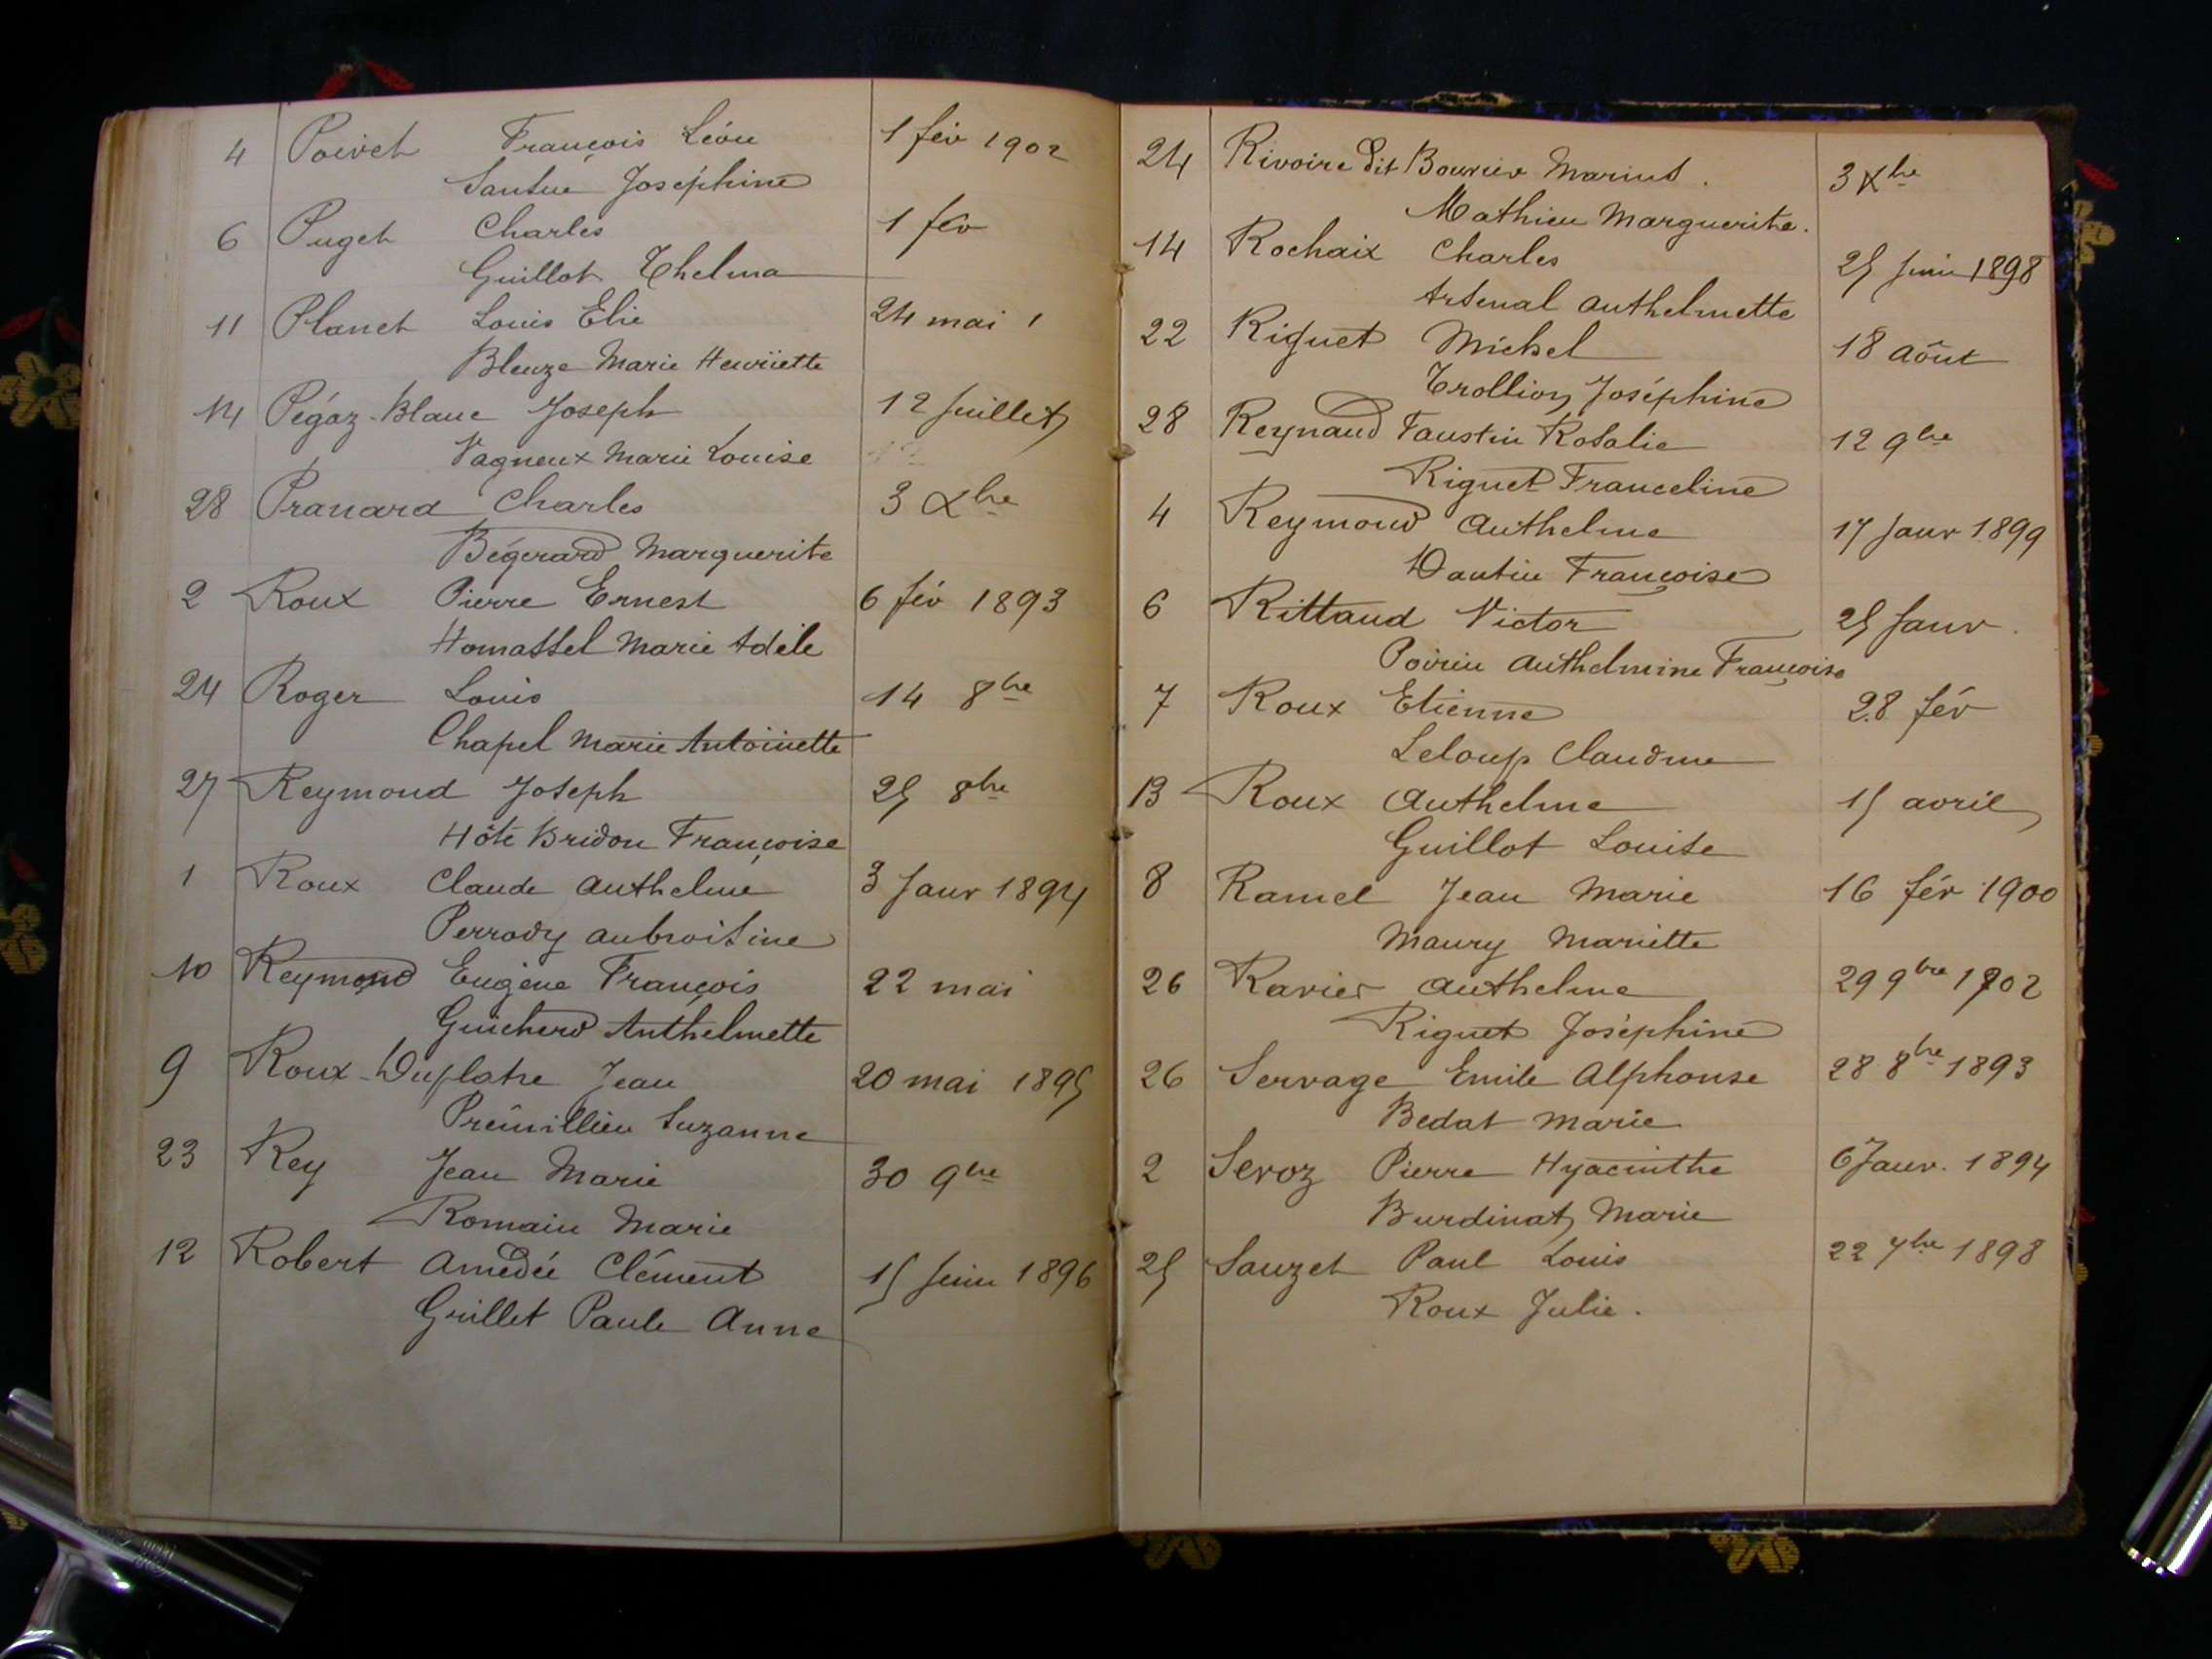 4 Poivet François Léon 1 fév 1902
Santue Joséphine
6 Puget Charles 1 fév
Guillot Thelma
11 Planet Louis Elie 24 mai
Bleuze Marie Henriette
14 Pégaz-Blanc Joseph 12 Juillet
Vagneux Marie Louise
28 Pranard Charles 3 Xbre
Bégerard Marguerite
2 Roux Pierre Ernest 6 fév 1893
Homassel Marie Adèle
24 Roger Louis 14 8bre
Chapel Marie Antoinette
27 Reymond Joseph 25 8bre
Hôte Bridon Françoise
1 Roux Claude Anthelme 3 Janv 1894
Perrody Ambroisine
10 Reymond Eugène François 22 mai
Guicherd Anthelmette
9 Roux-Duplatre Jean 20 mai 1895
Prémillieu Suzanne
23 Rey Jean Marie 30 9bre
Romain Marie
12 Robert Amédée Clément 15 Juin 1896
Grillet Paule Anne
24 Rivoire dit Bouvier Marius. 3 Xbre
Mathieu Marguerite.
14 Rochaix Charles 25 Juin 1898
Arsenal Anthelmette
22 Riguet Michel 18 Aôut
Trollion Joséphine
28 Reynaud Faustin Rosalie 12 9bre
Riguet Franceline
4 Reymond Anthelme 17 Janv 1899
Dantin Françoise
6 Rittaud Victor 25 Janv.
Poirin Anthelmine Françoise
7 Roux Etienne 28 fév
Leloup Claudine
13 Roux Anthelme 15 avril
Guillot Louise
8 Ramel Jean Marie 16 fév 1900
Maury Mariette
26 Ravier Anthelme 29 9bre 1902
Riguet Joséphine
26 Servage Emile Alphonse 28 8bre 1893
Bedat Marie
2 Sevoz Pierre Hyacinthe 6 Janv. 1894
Burdinat Marie
25 Sauzet Paul Louis 22 7bre 1898
Roux Julie.